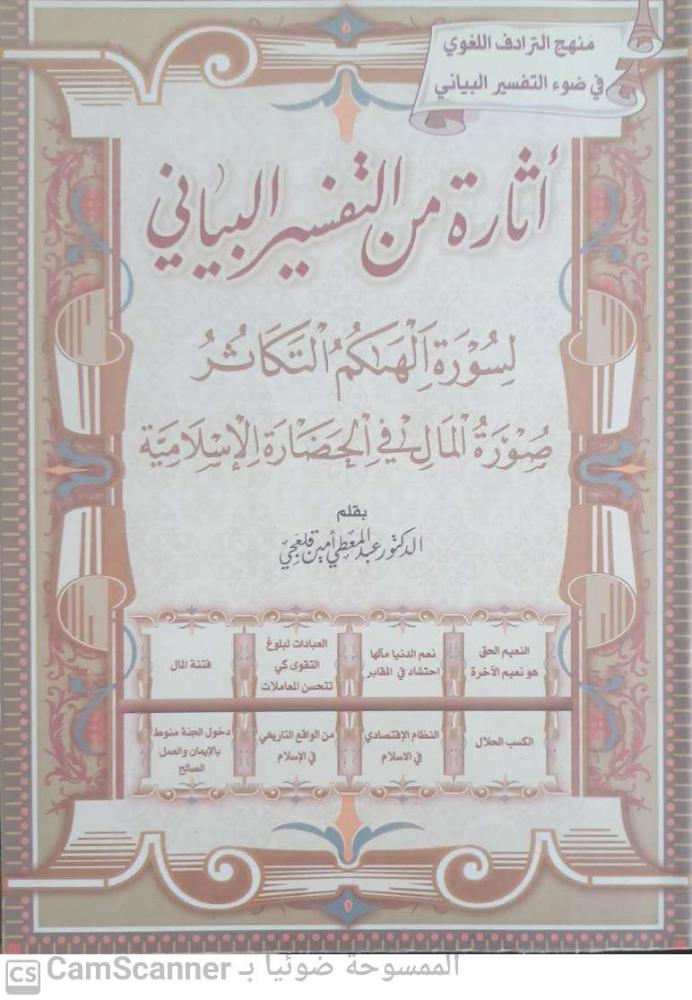 منهج الترادف اللغوي
في ضوء التفسير البياني
أثارة من التفسير البياني
لِسُورَةِ أَلْهَاكُمُ التَّكَاثُرُ
صُورَةُ المَالِ فِي الحَضَارَةِ الإِسْلَامِيَّة
بقلم
الدكتور عبد المعطي أمين قلعجي
النعيم الحق
هو نعيم الآخرة
نعم الدنيا مآلها
احتشاد في المقابر
العبادات لبلوغ
التقوى كي
تتحسن المعاملات
فتنة المال
الكسب الحلال
النظام الإقتصادي
في الاسلام
من الواقع التاريخي
في الإسلام
دخول الجنة منوط
بالإيمان والعمل
الصالح
الممسوحة ضوئيا بـ CamScanner
CS